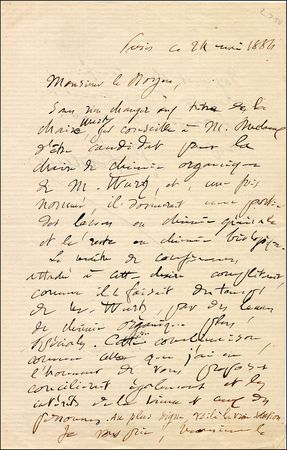 Paris ce 24 mai 1884
Monsieur le Doyen,
Sans rien changer au titre de la
chaire Wurtz, je conseille à M.
d'être candidat pour la
chaire de chimie organique
de M. Wurtz, et, une fois
nommé, il donnerait une partie
des leçons en chimie générale
et le reste en chimie biologique.
Le maître de conférences,
attaché à cette chaire complèterait,
comme il le faisait du temps
de M. Wurtz par des leçons
de chimie organique plus
spéciales. Cette combinaison,
comme celle que j'ai eu
l'honneur de vous proposer
concilierait également et les
intérêts de la science et ceux des
personnes. Au plus digne, voilà la vraie solution.
Je vous prie, Monsieur le